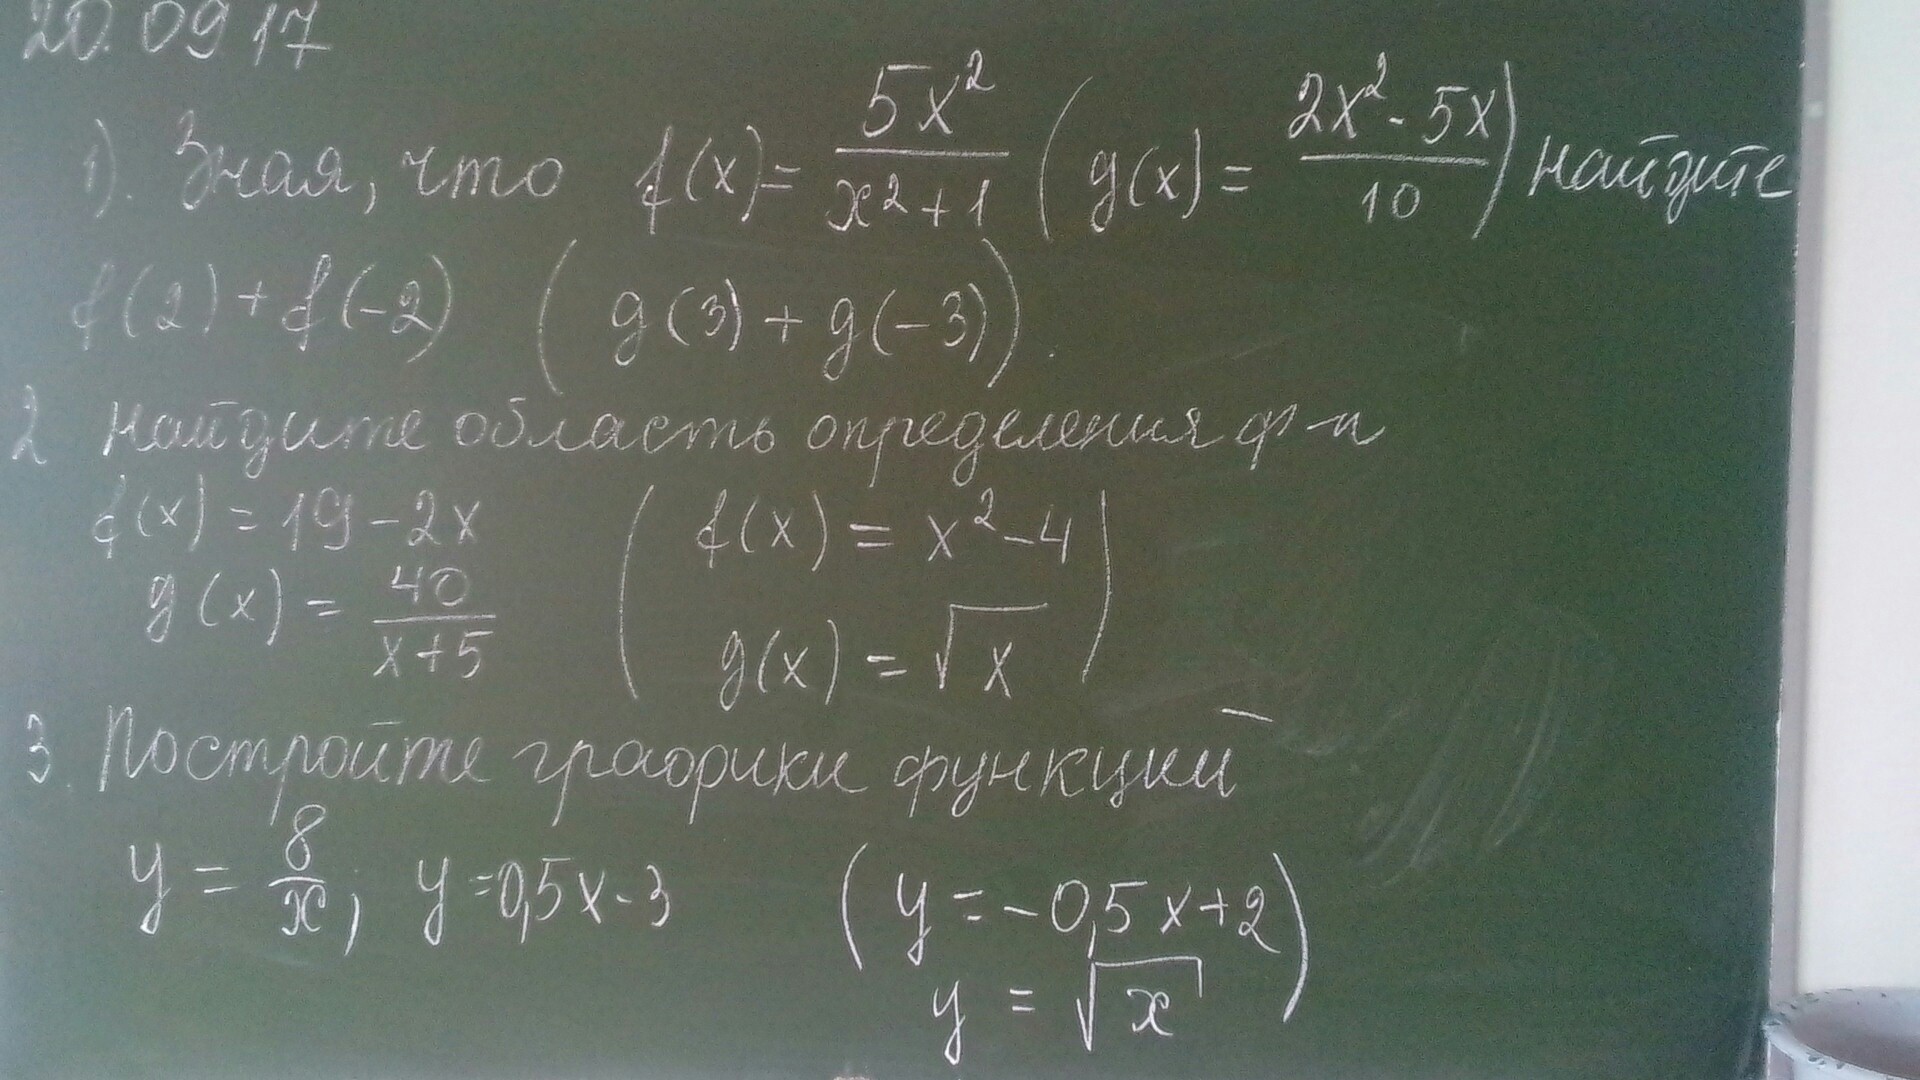 20.09 17
1). Зная, что f(x) = 5x²/(x²+1) (g(x) = (2x²-5x)/10) найдите
f(2) + f(-2) (g(3) + g(-3)).
2 найдите область определения ф-и
f(x) = 19 - 2x (f(x) = x² - 4
g(x) = 40/(x+5) g(x) = √x)
3. Постройте графики функций
y = 8/x, y = 0,5x - 3 (y = -0,5x + 2
y = √x)